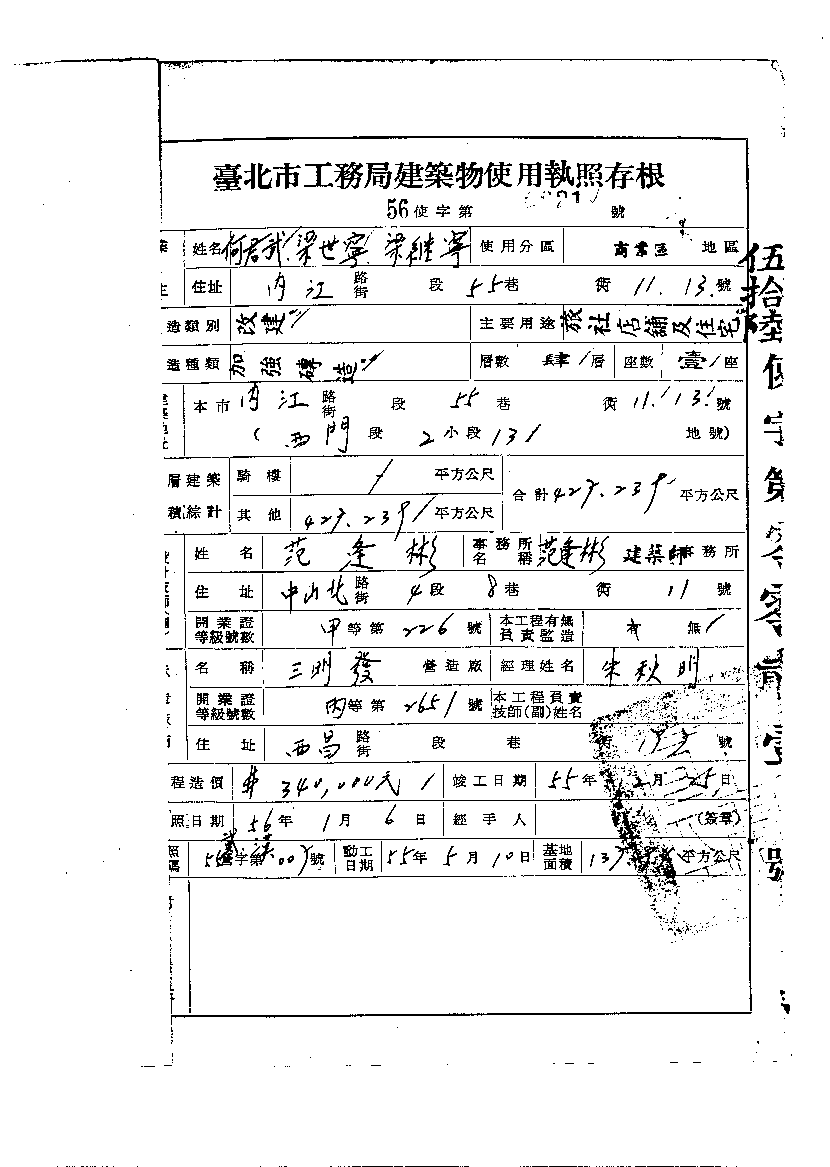 臺北市工務局建築物使用執照存根
56使字第 號
姓名 何君武 梁世寧 梁繼寧 使用分區 商業區 地區
住址 內江 路街 段 55巷 街 11.13.號
造類別 改建 主要用途 旅社店舖及住宅
造種類 加強磚造 層數 肆層 座數 壹座
本市 內江 路街 段 55巷 街 11.13.號
(西門段 2小段 131 地號)
層建築 騎樓 / 平方公尺 合計 平方公尺
積綜計 其他 平方公尺
姓名 范逢彬 事務所名稱 范逢彬 建築師事務所
住址 中山北 路街 4段 8巷 街 11號
開業證等級號數 甲等第226號 本工程有無負責監造 有 無
名稱 三明發 營造廠 經理姓名 朱秋明
開業證等級號數 丙等第265號 本工程員責技師(副)姓名
住址 西昌 路街 段 巷 街 號
程造價 340,000元 竣工日期 55年 月25日
照日期 56年1月6日 經手人 (簽章)
照 字第 號 動工日期 55年5月10日 基地面積 平方公尺
伍拾陸使字第零零貳壹號